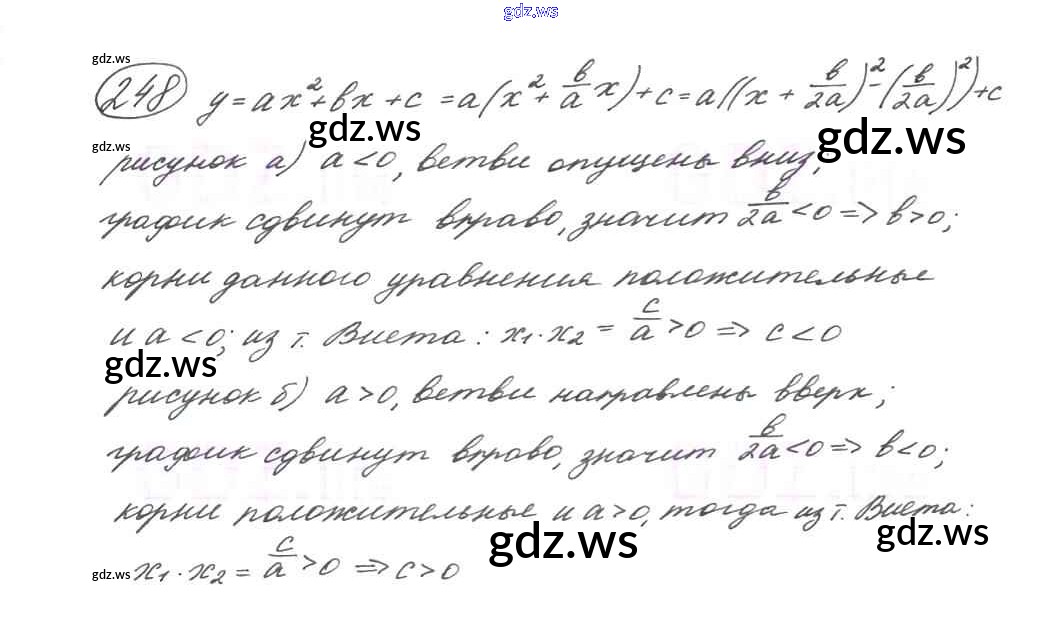 gdz.ws
gdz.ws
248 y = ax² + bx + c = a(x² + b/a x) + c = a((x + b/2a)² - (b/2a)²) + c
gdz.ws
gdz.ws gdz.ws
рисунок а) a < 0, ветви опущены вниз,
график сдвинут вправо, значит b/2a < 0 => b > 0;
корни данного уравнения положительные
и a < 0; из т. Виета: x₁·x₂ = c/a > 0 => c < 0
gdz.ws
рисунок б) a > 0, ветви направлены вверх;
график сдвинут вправо, значит b/2a < 0 => b < 0;
корни положительные и a > 0, тогда из т. Виета:
gdz.ws gdz.ws
gdz.ws x₁·x₂ = c/a > 0 => c > 0